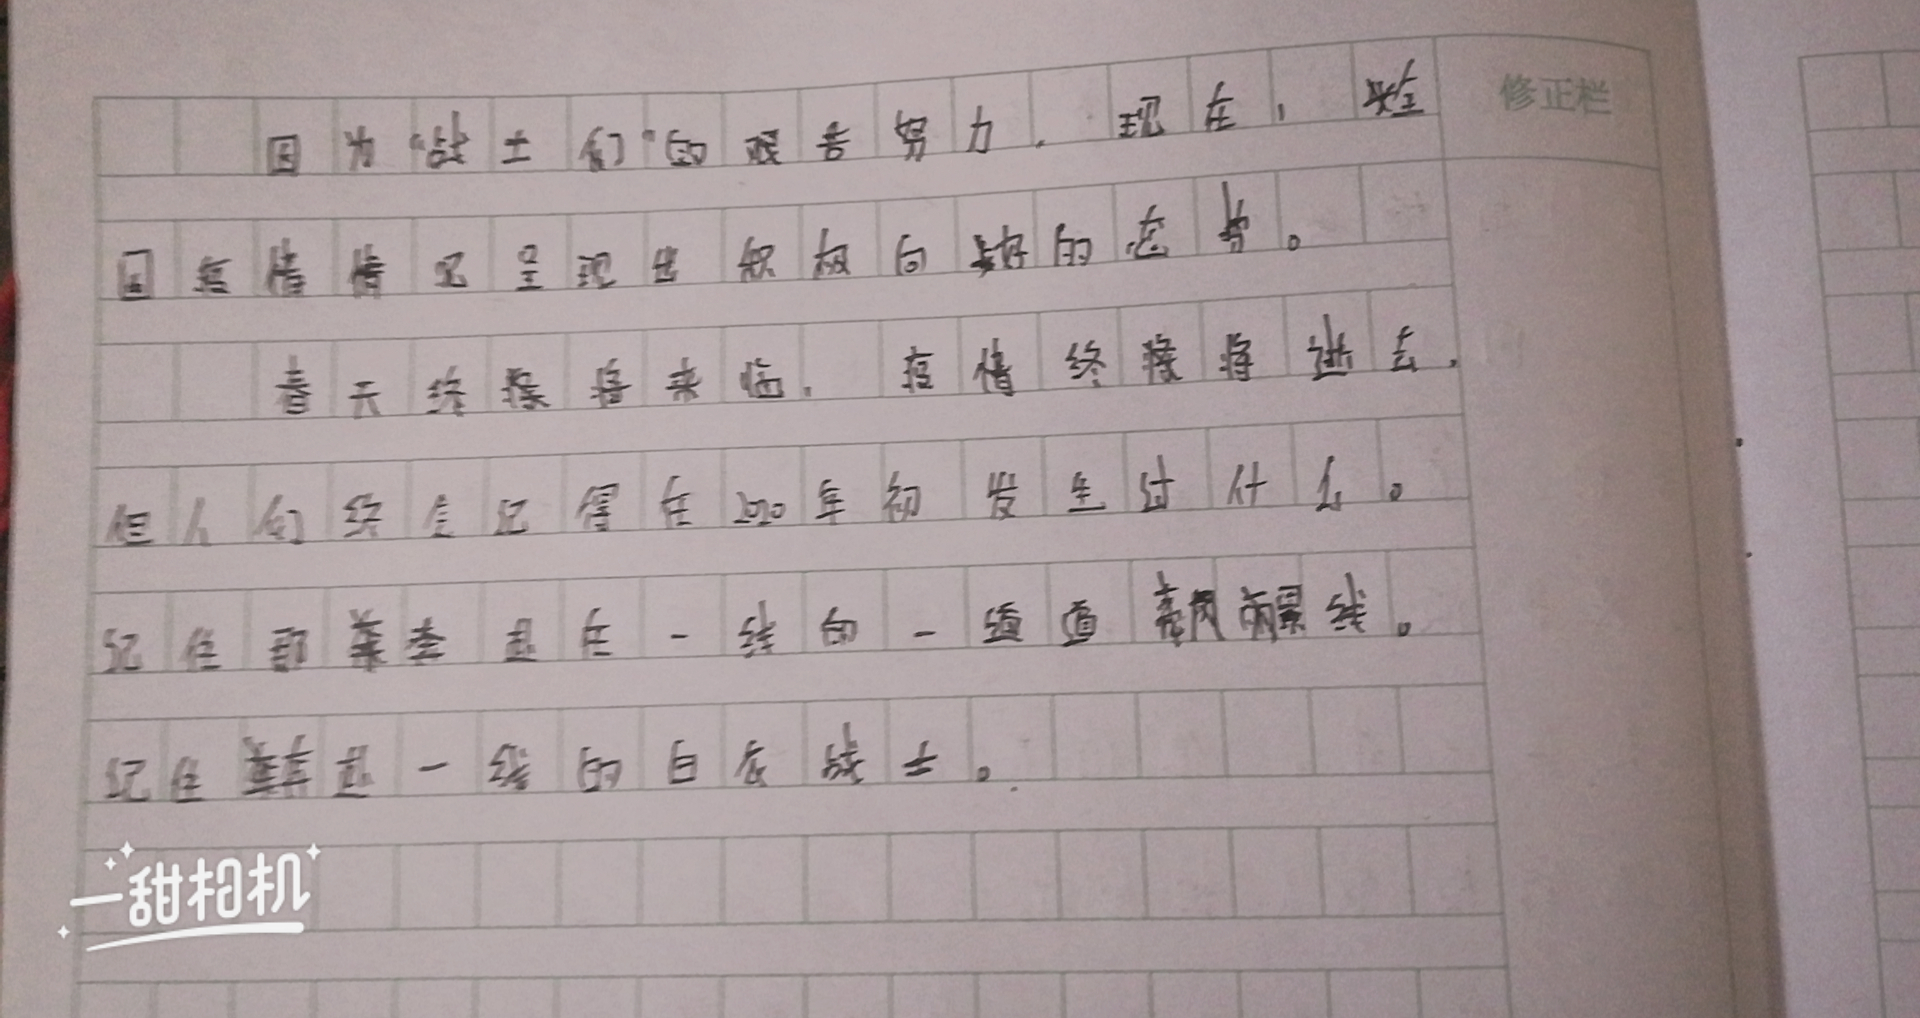 因为“战士们”的艰苦努力.现在,
修正栏
国疫情情况呈现出积极向好的态势。
春天终将来临.疫情终将逝去.
但人们终会记得在2020年初发生过什么。
记住那在一线的一道道风景线。
记住赴一线的白衣战士。
一甜相机